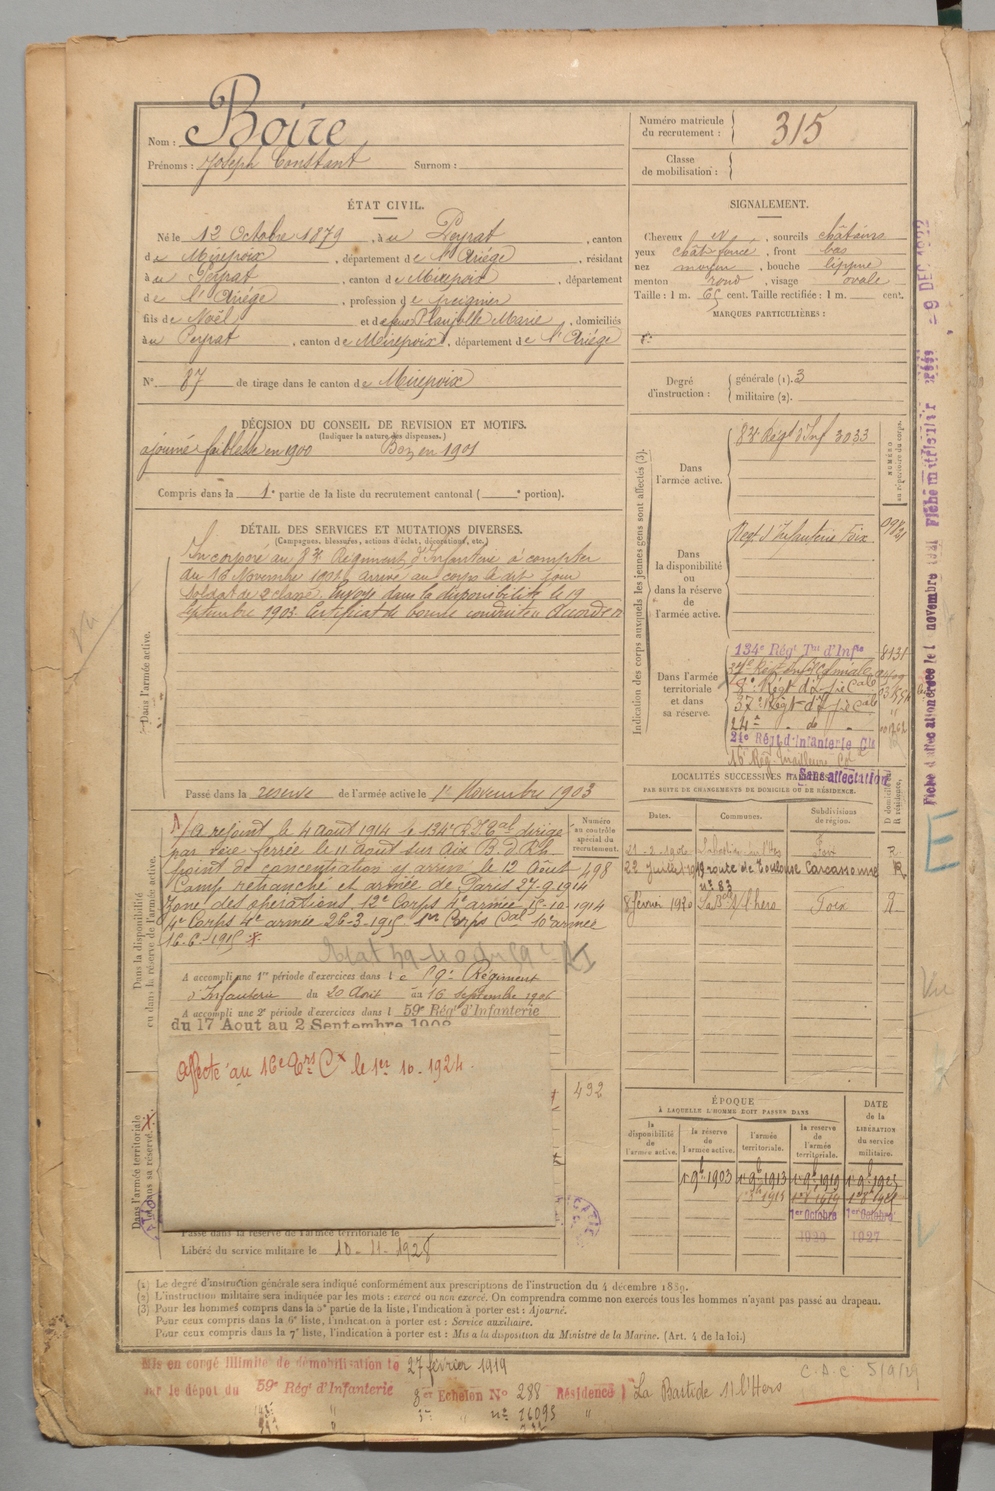 Nom : Boire
Prénoms : Joseph Constant Surnom :
Numéro matricule du recrutement : 315
Classe de mobilisation :
ÉTAT CIVIL.
Né le 12 Octobre 1879, à u Peyrat, canton
d e Mirepoix, département de l'Ariège, résidant
à u Peyrat, canton de Mirepoix, département
de l'Ariège, profession de peignier
fils de Noël et de feue Planjolle Marie, domiciliés
à u Peyrat, canton de Mirepoix, département de l'Ariège
N° 87 de tirage dans le canton de Mirepoix
SIGNALEMENT.
Cheveux, sourcils châtains
yeux chât foncé, front bas
nez moyen, bouche lippue
menton rond, visage ovale
Taille : 1 m. 65 cent. Taille rectifiée : 1 m. cent.
MARQUES PARTICULIÈRES :
Degré d'instruction : générale (1). 3
militaire (2).
DÉCISION DU CONSEIL DE REVISION ET MOTIFS.
(Indiquer la nature des dispenses.)
ajourné faiblesse en 1900 Bon en 1901
Compris dans la 1e partie de la liste du recrutement cantonal ( e portion).
DÉTAIL DES SERVICES ET MUTATIONS DIVERSES.
(Campagnes, blessures, actions d'éclat, décorations, etc.)
Dans l'armée active.
Incorporé au 83e Régiment d'Infanterie à compter
du 16 Novembre 1902, arrivé au corps le dit jour
Soldat de 2e classe. Envoyé dans la disponibilité le 19
Septembre 1903. Certificat de bonne conduite accordé
Passé dans la reserve de l'armée active le 1er Novembre 1903
Indication des corps auxquels les jeunes gens sont affectés (3).
Dans l'armée active.
83e Régt d'Inf 3033
NUMÉRO au répertoire du corps.
Dans la disponibilité ou dans la réserve de l'armée active.
Regt d'Infanterie Foix
Dans l'armée territoriale et dans sa réserve.
134e Régt Tal d'Infie 8131
8e Régt d'Infie Cale
37e Régt d'Infie Cale
24e - do -
21e Régt d'Infanterie Cle
16e Rég. Tirailleurs Col
Sans affectation
LOCALITÉS SUCCESSIVES HABITÉES
PAR SUITE DE CHANGEMENTS DE DOMICILE OU DE RÉSIDENCE.
Dates. Communes. Subdivisions de région. D domicile. R résidence.
Foix R
22 Juillet 19 route de Toulouse Carcassonne R
n° 83
8 février 1920 La Bde s/l'hers Foix R
Dans la disponibilité ou dans la réserve de l'armée active.
Numéro au contrôle spécial du recrutement.
498
1/ A rejoint le 4 août 1914 le 134e R.I.Tal dirigé
par voie ferrée le 11 août sur Aix B. d. Rh.
point de concentration y arrive le 12 Août
Camp retranché et armée de Paris 27-9-1914
Zone des opérations 12e Corps 4e armée 15-10-1914
4e Corps 4e armée 26-3-1915 1er Corps Cal 10e armée
16-6-1915 *
A accompli une 1re période d'exercices dans le 59e Régiment
d'Infanterie du 20 Août au 16 Septembre 1906
A accompli une 2e période d'exercices dans le 59e Régt d'Infanterie
du 17 Aout au 2 Septembre 1908
Affecté au 16e Tirs Cx le 1er 10. 1924.
492
Dans l'armée territoriale et dans sa réserve.
Passé dans la réserve de l'armée territoriale le
Libéré du service militaire le 10-11-1928
ÉPOQUE
À LAQUELLE L'HOMME DOIT PASSER DANS
la disponibilité de l'armée active. la réserve de l'armée active. l'armée territoriale. la réserve de l'armée territoriale.
DATE de la LIBÉRATION du service militaire.
1er 9bre 1903 1er 9bre 1913 1er 9bre 1919 1er 9bre 1925
1er Octobre 1er Octobre
1920 1927
(1) Le degré d'instruction générale sera indiqué conformément aux prescriptions de l'instruction du 4 décembre 1889.
(2) L'instruction militaire sera indiquée par les mots : exercé ou non exercé. On comprendra comme non exercés tous les hommes n'ayant pas passé au drapeau.
(3) Pour les hommes compris dans la 5e partie de la liste, l'indication à porter est : Ajourné.
Pour ceux compris dans la 6e liste, l'indication à porter est : Service auxiliaire.
Pour ceux compris dans la 7e liste, l'indication à porter est : Mis à la disposition du Ministre de la Marine. (Art. 4 de la loi.)
Mis en congé illimité de démobilisation le 27 février 1919
par le dépôt du 59e Régt d'Infanterie 8er Echelon N° 288 Résidence La Bastide s/ l'Hers
n° 16095
C.A.C 5/9/29